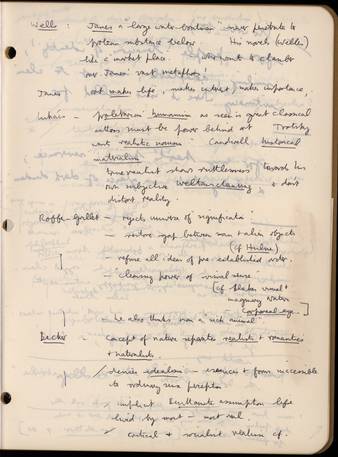 Wells : James a "large water-boatman" never penetrate to
protean substance below His novels (Wells's)
like a market place. who want to clamber
over James' vast metaphor
James / art makes life, makes interest, makes importance,
Lukacs - proletarian humanism as seen in great classical
authors must be power behind art Trotsky
want realistic monism Caudwell historical
materialism
true realist shows ruthlessness towards his
own subjective weltanschauung & don't
distort reality
Robbe-Grillet - rejects universe of signification
- restore gap between man & alien objects
(cf Hulme)
- refuse all idea of pre-established order.
- cleansing power of visual sense
(cf Blake's visual &
imaginary
corporeal eye.
- he also thinks man a sick animal
Becker - concept of nature separates realists & romantics
& naturalists.
/ denies idealism - essences & form inaccessible
to ordinary sense perception
implicit Benthamite assumption life
lived by most - most real.
/ critical & socialist realism cf.